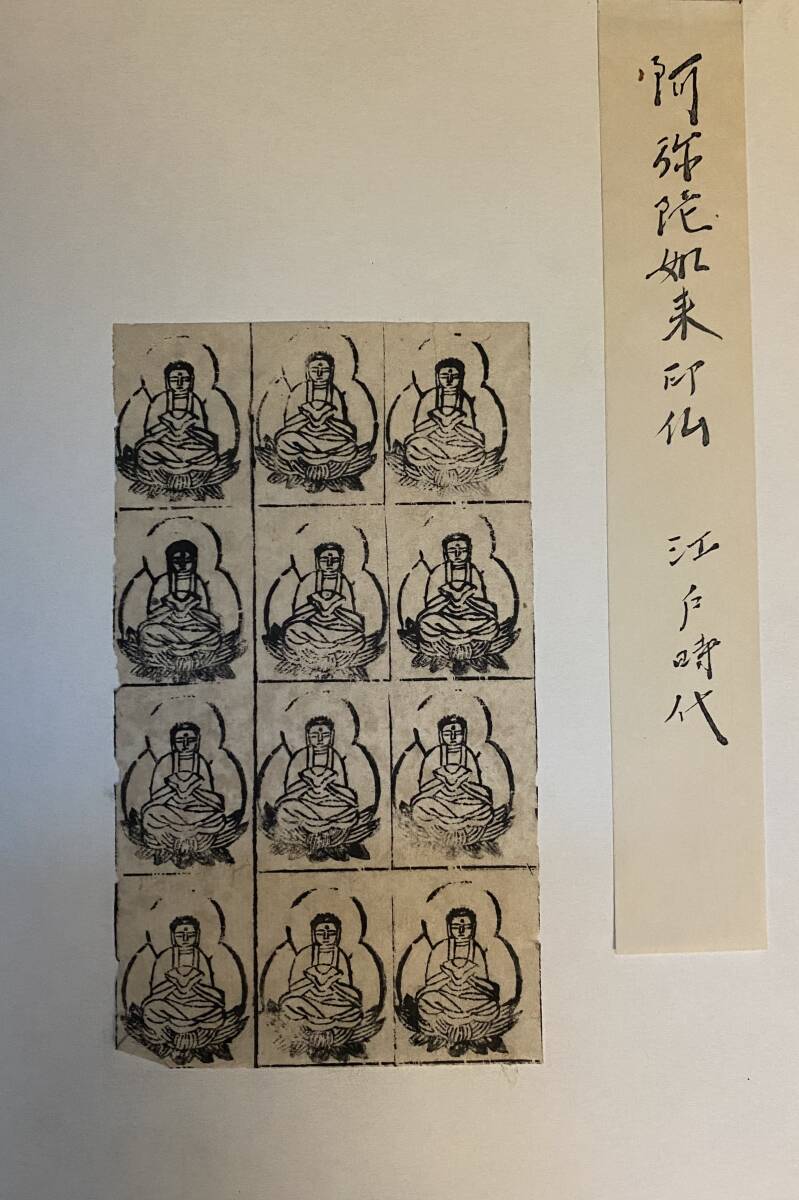 阿弥陀如来印仏 江戸時代